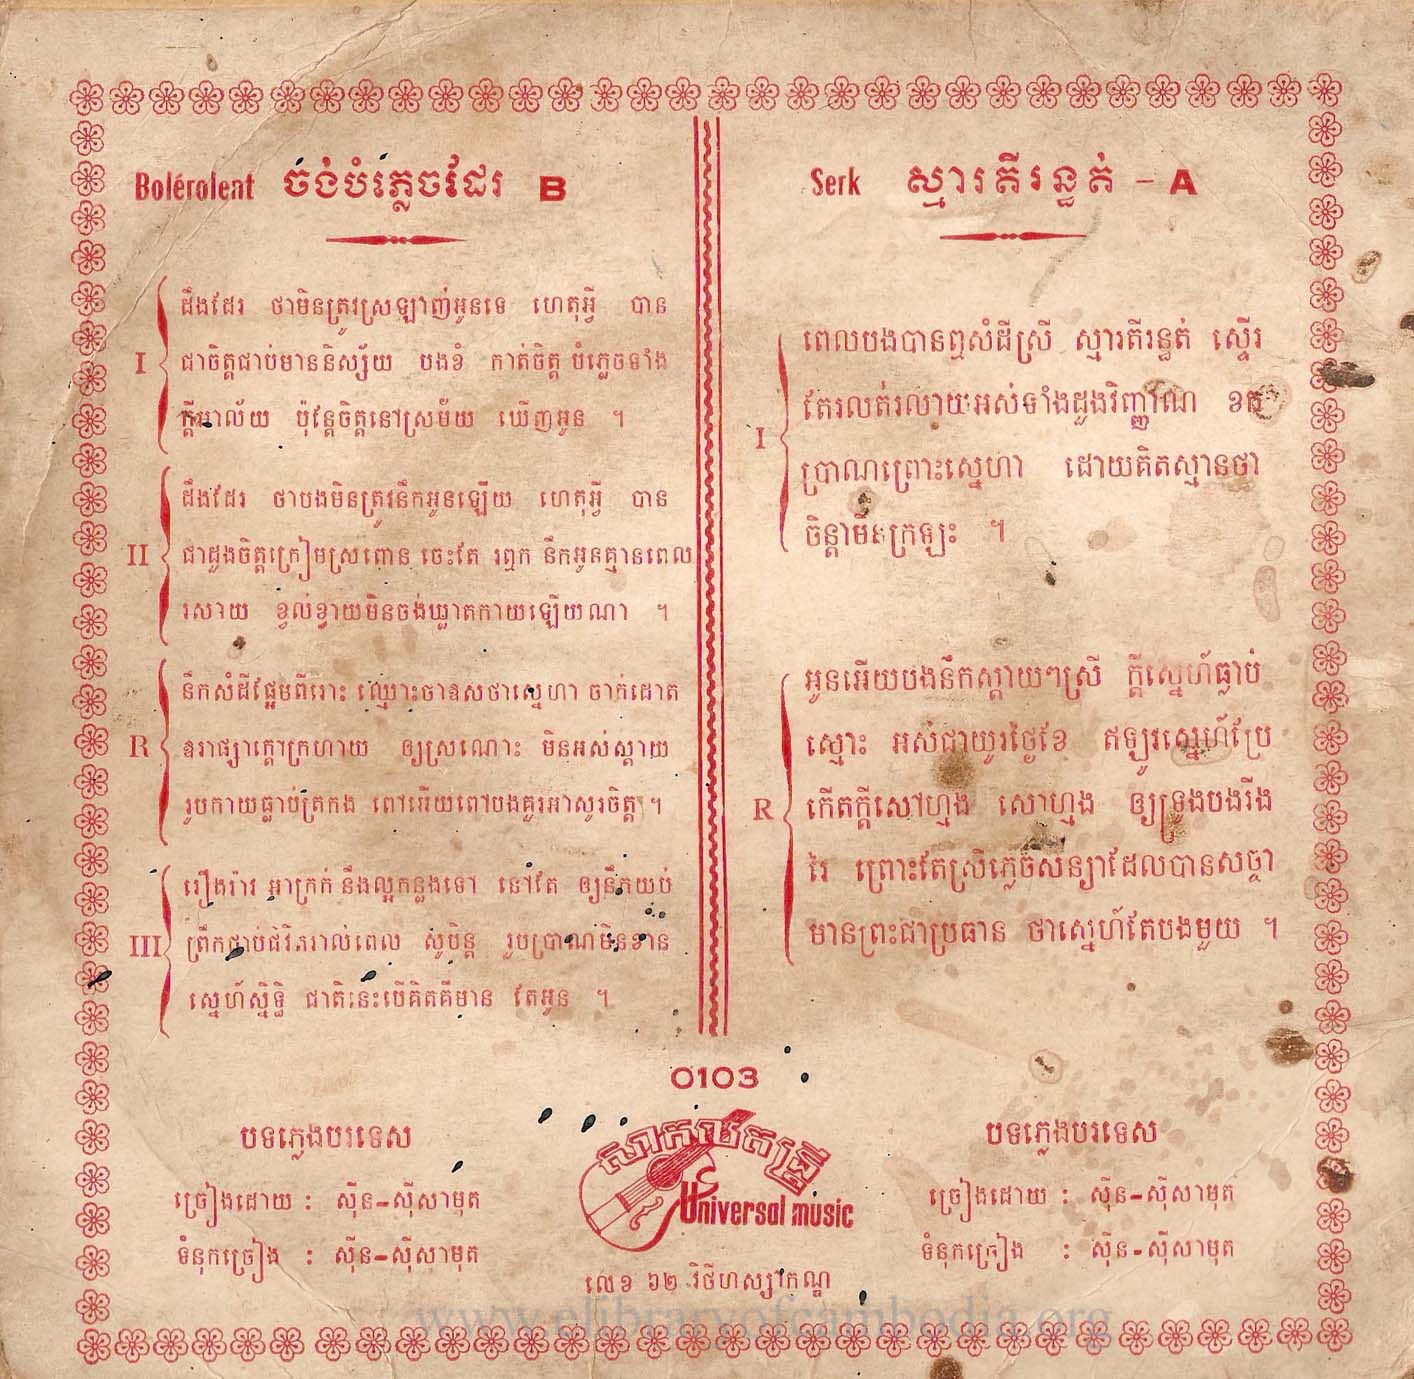 Bolérolent ចង់បំភ្លេចដែរ B
I
ដឹងដែរ ថាមិនត្រូវស្រឡាញ់អូនទេ ហេតុអ្វី បាន
ជាចិត្តជាប់មាននិស្ស័យ បងខំ កាត់ចិត្ត បំភ្លេចទាំង
ក្ដីអាល័យ ប៉ុន្តែចិត្តនៅស្រម័យ ឃើញអូន ។
II
ដឹងដែរ ថាបងមិនត្រូវនឹកអូនឡើយ ហេតុអ្វី បាន
ជាដួងចិត្តក្រៀមស្រពោន ចេះតែ រឭក នឹកអូនគ្មានពេល
រសាយ ខ្វល់ខ្វាយមិនចង់ឃ្លាតកាយឡើយណា ។
R
នឹកសំដីផ្អែមពីរោះ ឈ្មោះចាឧសថាស្នេហា ចាក់ដោត
ឧរាផ្សាក្ដៅក្រហាយ ឲ្យស្រណោះ មិនអស់ស្ដាយ
រូបកាយធ្លាប់ត្រកង ពៅអើយពៅបងគួរអាសូរចិត្ត ។
III
រឿងរ៉ាវ អាក្រក់ នឹងល្អកន្លងទៅ នៅតែ ឲ្យនឹកយប់
ព្រឹកជាប់ជីវិតរាល់ពេល សូបិន្ត រូបប្រាណមិនខាន
ស្នេហ៍ស្និទ្ធិ ជាតិនេះបើគិតគឺមាន តែអូន ។
Serk ស្មារតីរន្ធត់ – A
I
ពេលបងបានឮសំដីស្រី ស្មារតីរន្ធត់ ស្ទើរ
តែរលត់រលាយអស់ទាំងដួងវិញ្ញាណ ខត
ប្រាណព្រោះស្នេហា ដោយគិតស្មានថា
ចិន្ដាមិនក្រឡះ ។
R
អូនអើយបងនឹកស្ដាយៗស្រី ក្ដីស្នេហ៍ធ្លាប់
ស្មោះ អស់ជាយូរថ្ងៃខែ ឥឡូវស្នេហ៍ប្រែ
កើតក្ដីសៅហ្មង សោហ្មង ឲ្យទ្រូងបងរីង
រៃ ព្រោះតែស្រីភ្លេចសន្យាដែលបានសច្ចា
មានព្រះជាប្រធាន ថាស្នេហ៍តែបងមួយ ។
0103
បទភ្លេងបរទេស
ច្រៀងដោយ : ស៊ីន-ស៊ីសាមុត
ទំនុកច្រៀង : ស៊ីន-ស៊ីសាមុត
សាកលតន្ត្រី
Universal music
លេខ ៦២ វិថីហស្សកណ្ឌ
បទភ្លេងបរទេស
ច្រៀងដោយ : ស៊ីន-ស៊ីសាមុត
ទំនុកច្រៀង : ស៊ីន-ស៊ីសាមុត
www.elibraryofcambodia.org